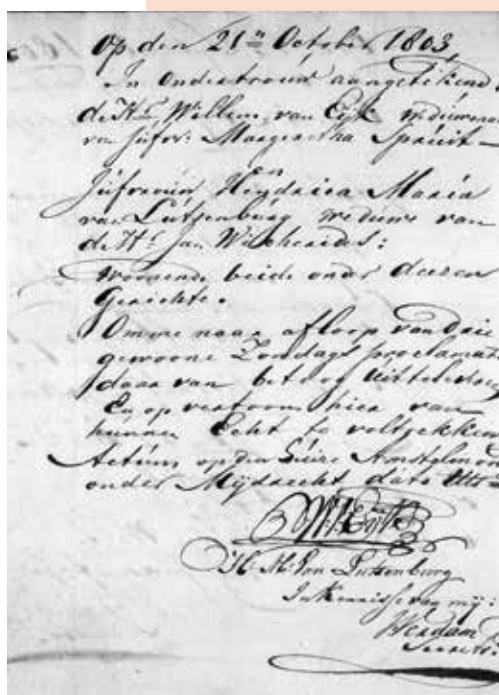 Op den 21n October 1803,
In ondertrouw aangetekend
de Hr. Willem van Eijk weduwenaar
van Jufvr. Margaretha Spruit –
En
Jufvrouw Heijdrica Maria
van Lutzenburg weduwe van
de Hr. Jan Wichericus:
woonende beide onder deesen
Gerichte.
Omme naar afloop van drie
gewoone Zondags proclamatien
daar van
En op vertoon hier van
hunnen Echt te voltrekken
Actum op den huize Amstel
onder Mijdrecht dato
W. V. Eijk
H. M. Van Lutzenburg
In kennisse van mij:
Verdam
Secrets.